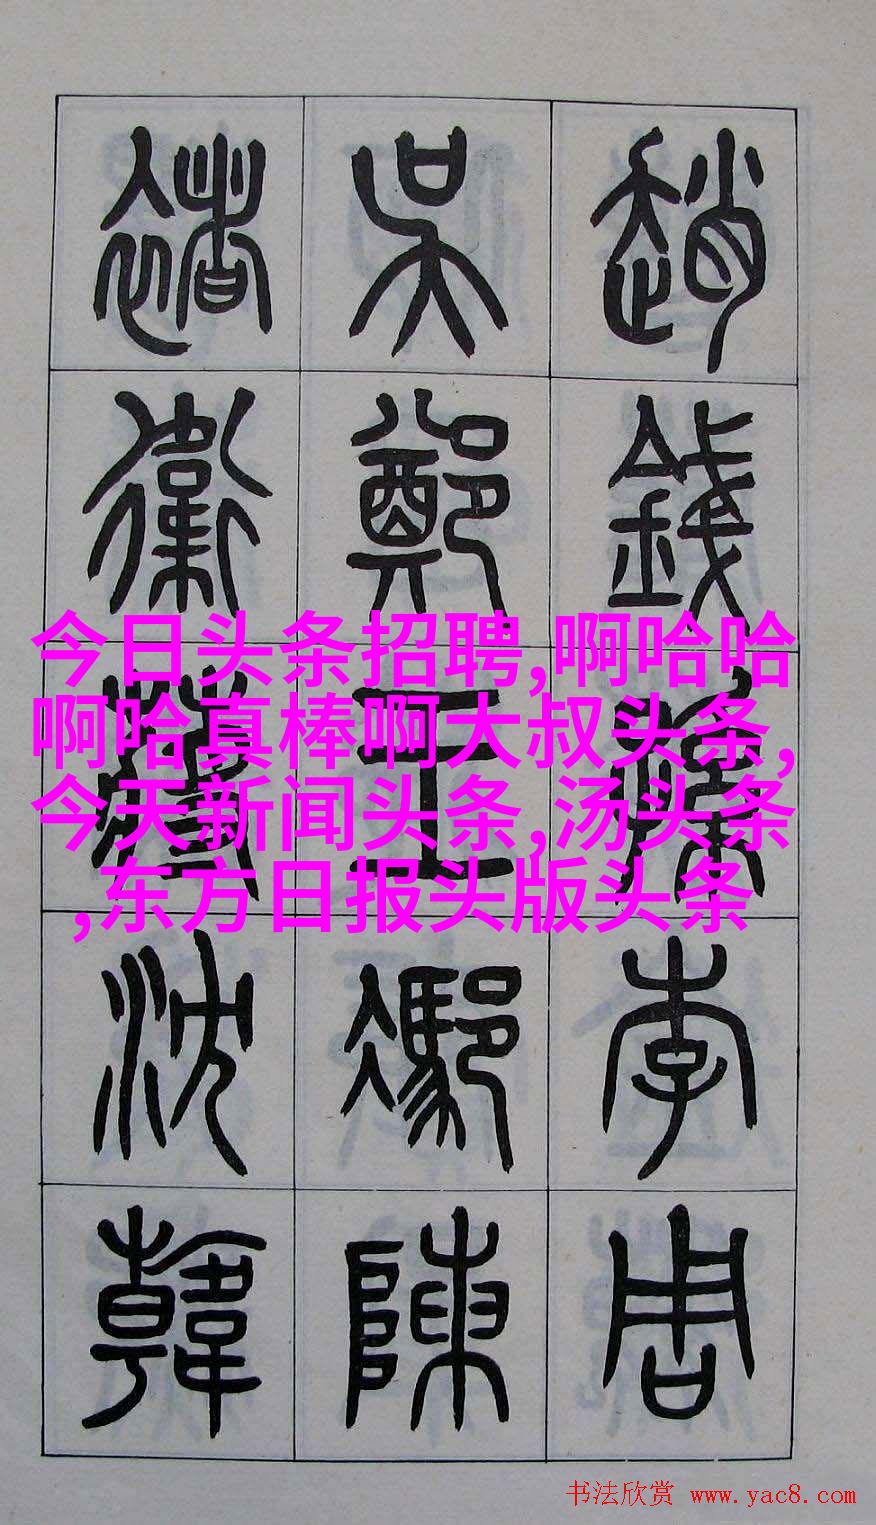 趙錢孫李周
吳鄭王馮陳
褚衛蔣沈韓
今日头条招聘,啊哈哈
啊哈真棒啊大叔头条,
今天新闻头条,汤头条
,东方日报头版头条
书法欣赏 www.yac8.com